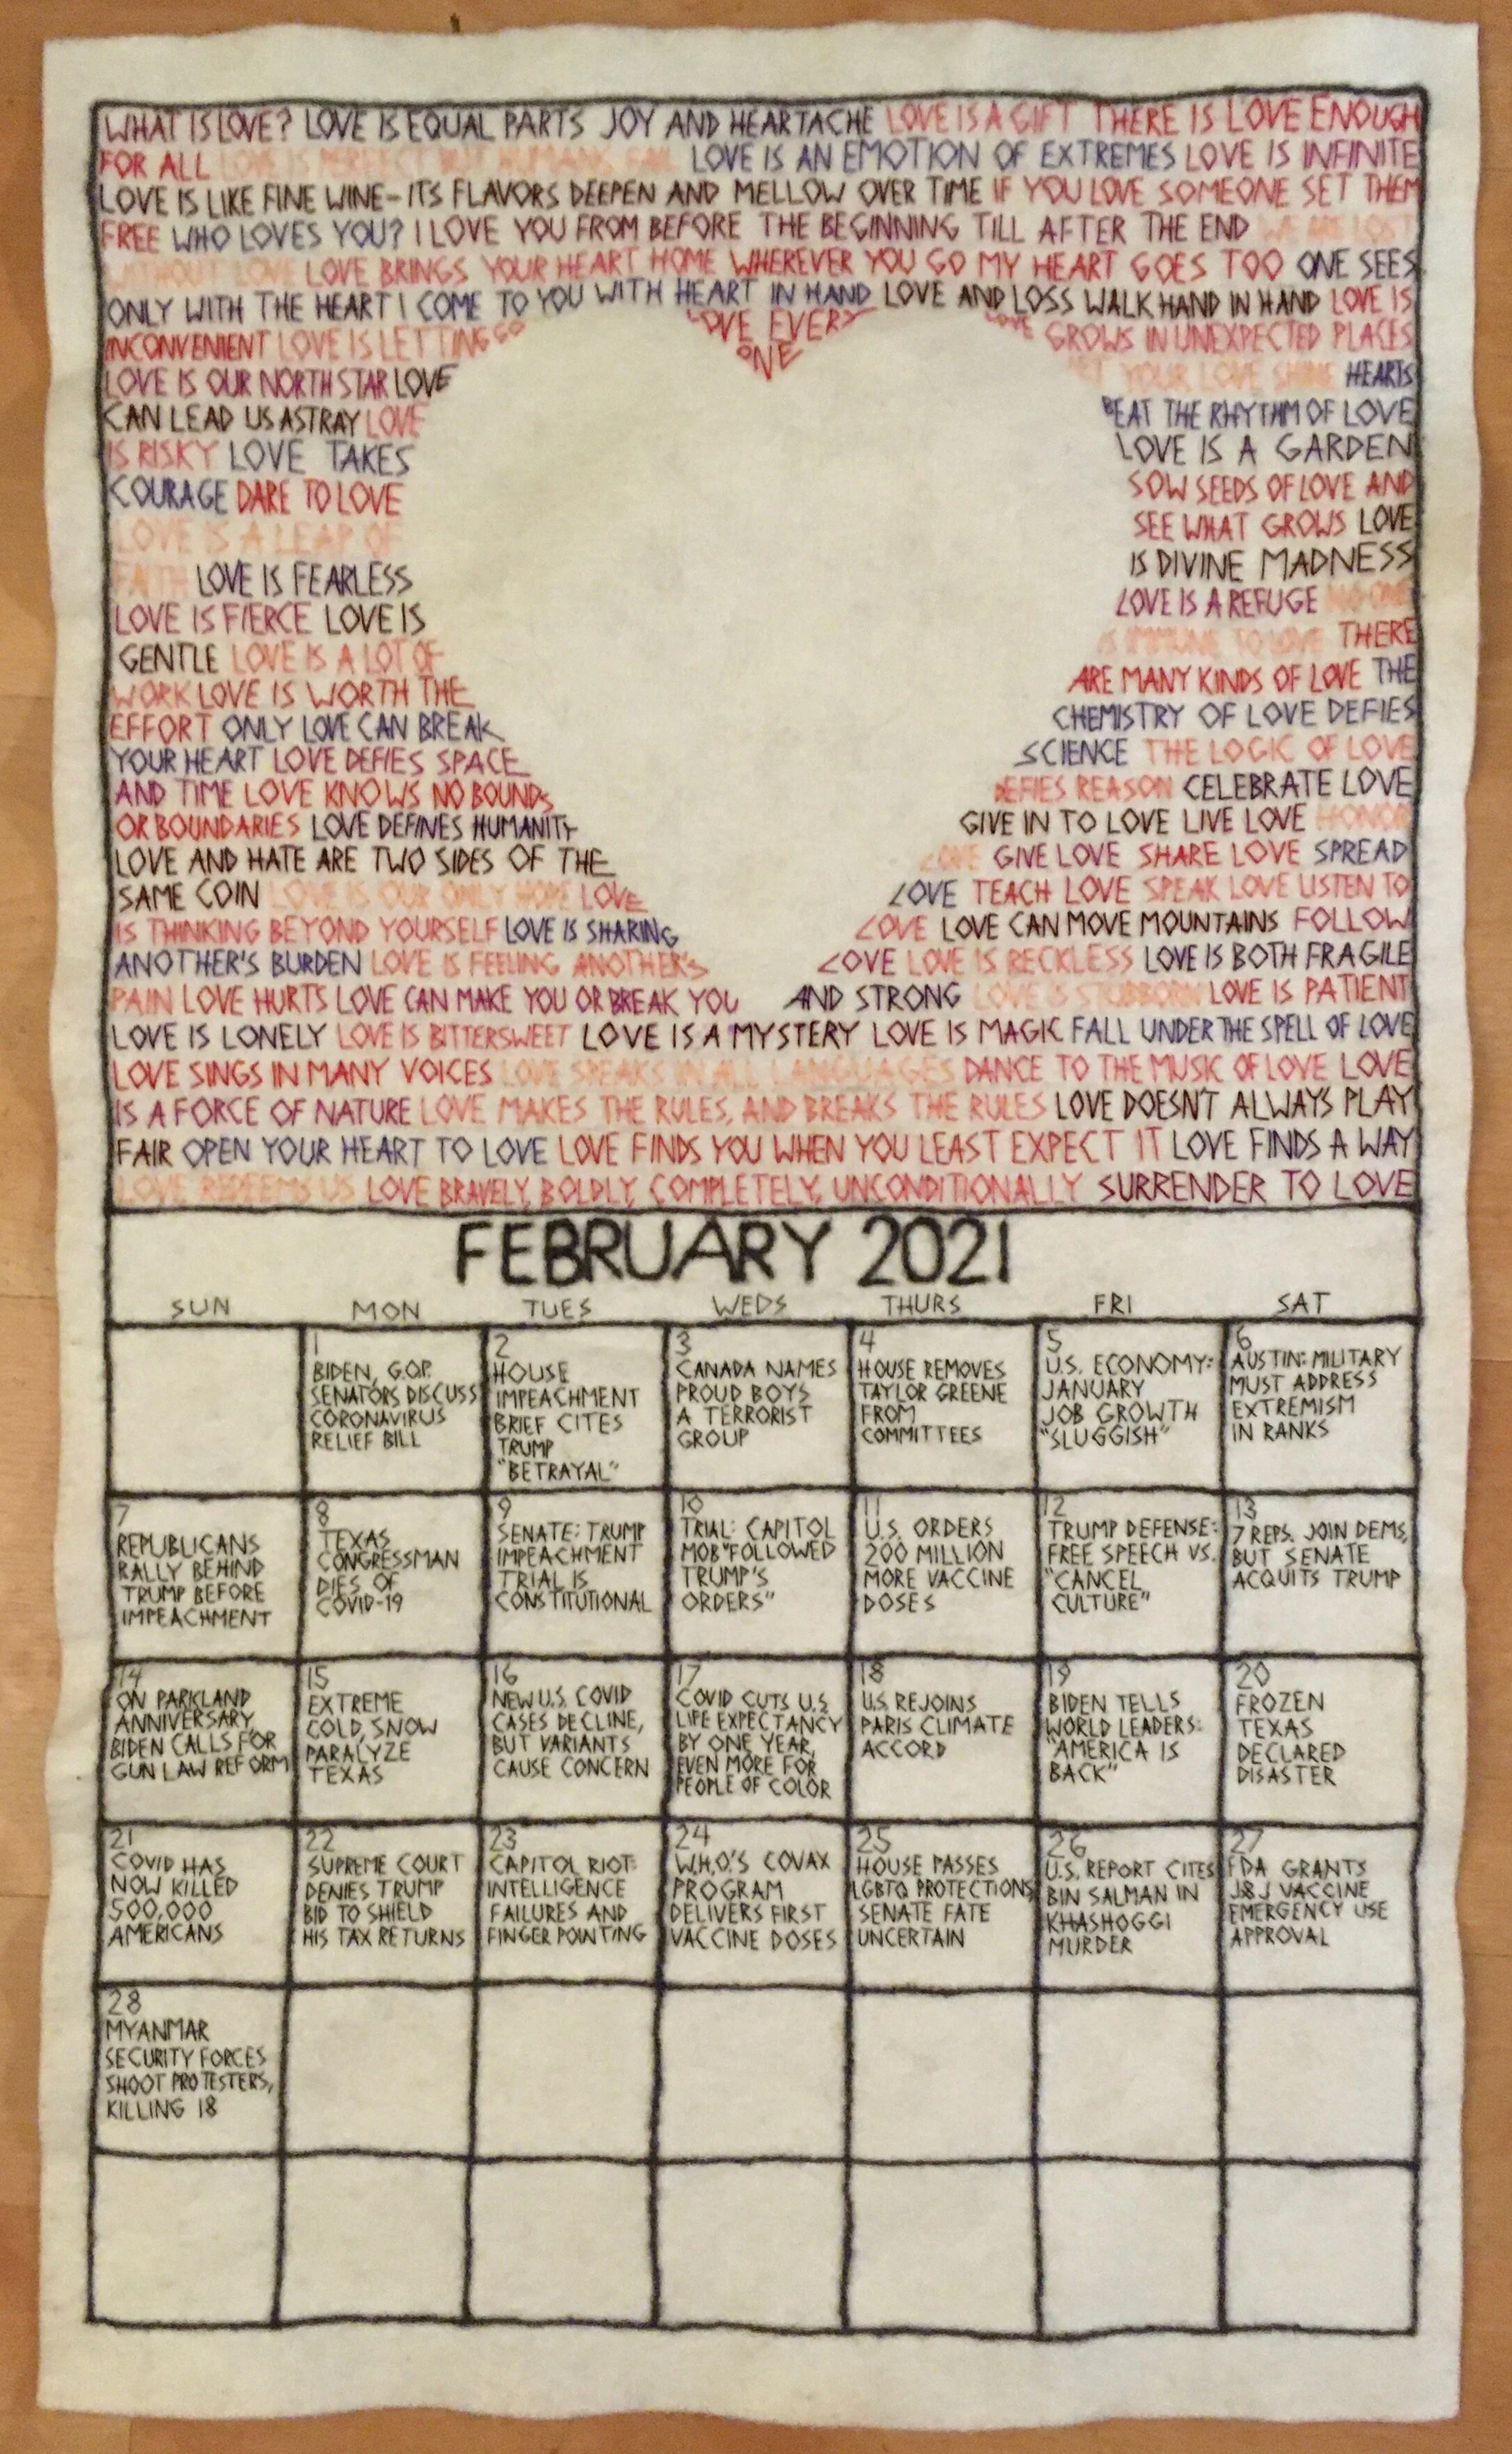 WHAT IS LOVE? LOVE IS EQUAL PARTS JOY AND HEARTACHE LOVE IS A GIFT THERE IS LOVE ENOUGH
FOR ALL LOVE IS PERFECT BUT HUMANS FAIL LOVE IS AN EMOTION OF EXTREMES LOVE IS INFINITE
LOVE IS LIKE FINE WINE-ITS FLAVORS DEEPEN AND MELLOW OVER TIME IF YOU LOVE SOMEONE SET THEM
FREE WHO LOVES YOU? I LOVE YOU FROM BEFORE THE BEGINNING TILL AFTER THE END WE ARE LOST
WITHOUT LOVE LOVE BRINGS YOUR HEART HOME WHEREVER YOU GO MY HEART GOES TOO ONE SEES
ONLY WITH THE HEART I COME TO YOU WITH HEART IN HAND LOVE AND LOSS WALK HAND IN HAND LOVE IS
INCONVENIENT LOVE IS LETTING GO LOVE EVERY ONE LOVE GROWS IN UNEXPECTED PLACES
LOVE IS OUR NORTH STAR LOVE
CAN LEAD US ASTRAY LOVE
IS RISKY LOVE TAKES
COURAGE DARE TO LOVE
LOVE IS A LEAP OF
FAITH LOVE IS FEARLESS
LOVE IS FIERCE LOVE IS
GENTLE LOVE IS A LOT OF
WORK LOVE IS WORTH THE
EFFORT ONLY LOVE CAN BREAK
YOUR HEART LOVE DEFIES SPACE
AND TIME LOVE KNOWS NO BOUNDS
OR BOUNDARIES LOVE DEFINES HUMANITY
LOVE AND HATE ARE TWO SIDES OF THE
SAME COIN LOVE IS OUR ONLY HOPE LOVE
IS THINKING BEYOND YOURSELF LOVE IS SHARING
ANOTHER'S BURDEN LOVE IS FEELING ANOTHER'S
PAIN LOVE HURTS LOVE CAN MAKE YOU OR BREAK YOU
LET YOUR LOVE SHINE HEARTS
BEAT THE RHYTHM OF LOVE
LOVE IS A GARDEN
SOW SEEDS OF LOVE AND
SEE WHAT GROWS LOVE
IS DIVINE MADNESS
LOVE IS A REFUGE NO ONE
IS IMMUNE TO LOVE THERE
ARE MANY KINDS OF LOVE THE
CHEMISTRY OF LOVE DEFIES
SCIENCE THE LOGIC OF LOVE
DEFIES REASON CELEBRATE LOVE
GIVE IN TO LOVE LIVE LOVE HONOR
LOVE GIVE LOVE SHARE LOVE SPREAD
LOVE TEACH LOVE SPEAK LOVE LISTEN TO
LOVE LOVE CAN MOVE MOUNTAINS FOLLOW
LOVE LOVE IS RECKLESS LOVE IS BOTH FRAGILE
AND STRONG LOVE IS STUBBORN LOVE IS PATIENT
LOVE IS LONELY LOVE IS BITTERSWEET LOVE IS A MYSTERY LOVE IS MAGIC FALL UNDER THE SPELL OF LOVE
LOVE SINGS IN MANY VOICES LOVE SPEAKS IN ALL LANGUAGES DANCE TO THE MUSIC OF LOVE LOVE
IS A FORCE OF NATURE LOVE MAKES THE RULES, AND BREAKS THE RULES LOVE DOESN'T ALWAYS PLAY
FAIR OPEN YOUR HEART TO LOVE LOVE FINDS YOU WHEN YOU LEAST EXPECT IT LOVE FINDS A WAY
LOVE REDEEMS US LOVE BRAVELY, BOLDLY, COMPLETELY, UNCONDITIONALLY SURRENDER TO LOVE
FEBRUARY 2021
SUN MON TUES WEDS THURS FRI SAT
1
BIDEN, G.O.P.
SENATORS DISCUSS
CORONAVIRUS
RELIEF BILL
2
HOUSE
IMPEACHMENT
BRIEF CITES
TRUMP
"BETRAYAL"
3
CANADA NAMES
PROUD BOYS
A TERRORIST
GROUP
4
HOUSE REMOVES
TAYLOR GREENE
FROM
COMMITTEES
5
U.S. ECONOMY:
JANUARY
JOB GROWTH
"SLUGGISH"
6
AUSTIN: MILITARY
MUST ADDRESS
EXTREMISM
IN RANKS
7
REPUBLICANS
RALLY BEHIND
TRUMP BEFORE
IMPEACHMENT
8
TEXAS
CONGRESSMAN
DIES OF
COVID-19
9
SENATE: TRUMP
IMPEACHMENT
TRIAL IS
CONSTITUTIONAL
10
TRIAL: CAPITOL
MOB "FOLLOWED
TRUMP'S
ORDERS"
11
U.S. ORDERS
200 MILLION
MORE VACCINE
DOSES
12
TRUMP DEFENSE:
FREE SPEECH VS.
"CANCEL
CULTURE"
13
7 REPS. JOIN DEMS,
BUT SENATE
ACQUITS TRUMP
14
ON PARKLAND
ANNIVERSARY,
BIDEN CALLS FOR
GUN LAW REFORM
15
EXTREME
COLD, SNOW
PARALYZE
TEXAS
16
NEW U.S. COVID
CASES DECLINE,
BUT VARIANTS
CAUSE CONCERN
17
COVID CUTS U.S.
LIFE EXPECTANCY
BY ONE YEAR,
EVEN MORE FOR
PEOPLE OF COLOR
18
U.S. REJOINS
PARIS CLIMATE
ACCORD
19
BIDEN TELLS
WORLD LEADERS:
"AMERICA IS
BACK"
20
FROZEN
TEXAS
DECLARED
DISASTER
21
COVID HAS
NOW KILLED
500,000
AMERICANS
22
SUPREME COURT
DENIES TRUMP
BID TO SHIELD
HIS TAX RETURNS
23
CAPITOL RIOT:
INTELLIGENCE
FAILURES AND
FINGER POINTING
24
W.H.O.'S COVAX
PROGRAM
DELIVERS FIRST
VACCINE DOSES
25
HOUSE PASSES
LGBTQ PROTECTIONS
SENATE FATE
UNCERTAIN
26
U.S. REPORT CITES
BIN SALMAN IN
KHASHOGGI
MURDER
27
FDA GRANTS
J&J VACCINE
EMERGENCY USE
APPROVAL
28
MYANMAR
SECURITY FORCES
SHOOT PROTESTERS,
KILLING 18